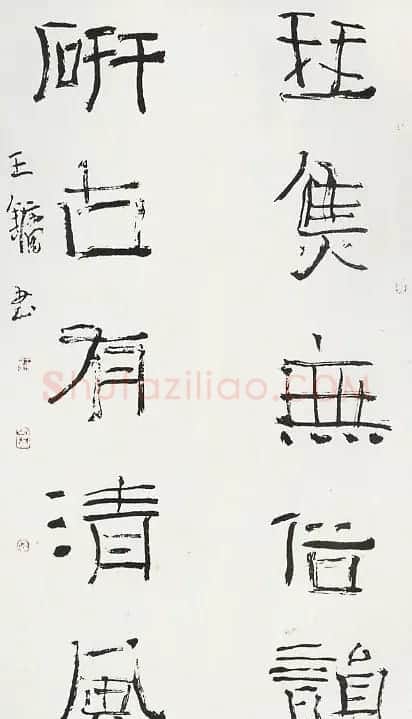 雋無俗韻
研古有清風
王鏞书
Shufaziliao.COM